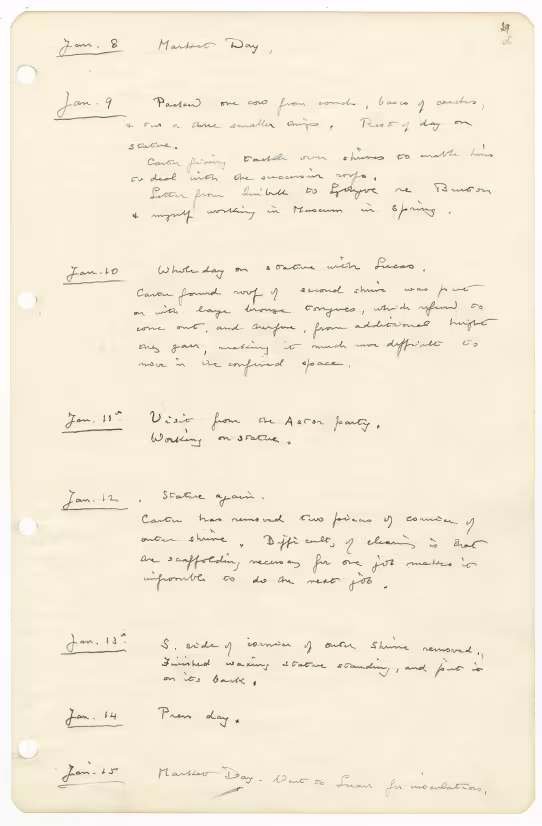 29
Jan. 8 Market Day,
Jan. 9 Packed one cow from couch, bases of couches,
& two or three smaller things. Rest of day on
statue.
Carter fixing tackle over shrines to enable him
to deal with the successive roofs.
Letter from Quibell to Lythgoe re Burton
& myself working in Museum in Spring.
Jan. 10 Whole day on statue with Lucas.
Carter found roof of second shrine was put
on with large bronze tongues, which refused to
come out, and therefore, from additional height
they gain, making it much more difficult to
move in the confined space.
Jan. 11th Visit from the Astor party.
Working on statue.
Jan. 12. Statue again.
Carter has removed two pieces of cornice of
outer shrine. Difficulty of clearing is that
the scaffolding necessary for one job makes it
impossible to do the next job.
Jan. 13th S. side of cornice of outer shrine removed.
Finished waxing statue standing, and put it
on its back.
Jan. 14 Press day.
Jan. 15 Market Day. Went to Luxor for inoculation.